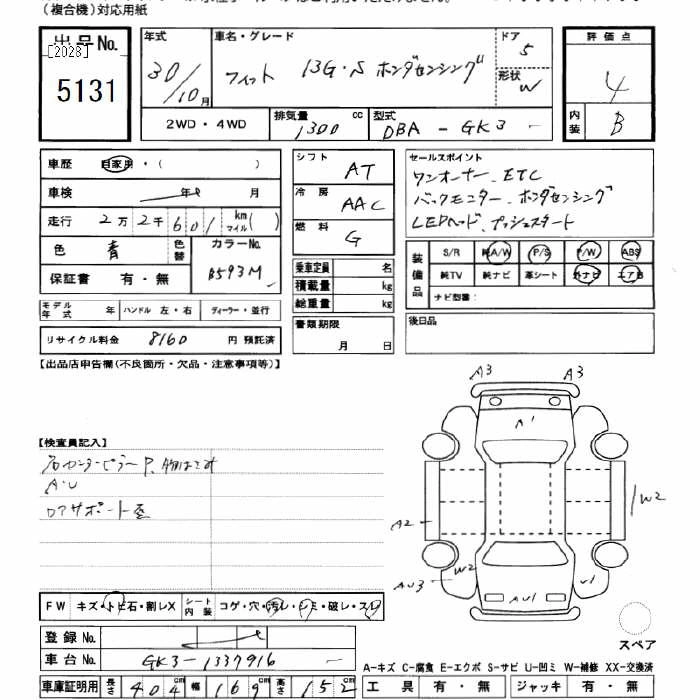 (複合機)対応用紙
出品No.
[2028]
5131
年式 30/10月
車名・グレード フィット 13G・S ホンダセンシング
ドア 5
形状 W
評価点 4
内装 B
2WD・4WD
排気量 1300 cc
型式 DBA - GK3 -
車歴 自家用・( )
車検 年 月
走行 2万2千601 km マイル( )
色 青 色替 カラーNo. B593M
保証書 有・無
モデル年式 年 ハンドル 左・右 ディーラー・並行
リサイクル料金 8160 円 預託済
シフト AT
冷房 AAC
燃料 G
乗車定員 名
積載量 kg
総重量 kg
書類期限
月 日
セールスポイント
ワンオーナー、ETC
バックモニター、ホンダセンシング
LEDヘッド、プッシュスタート
装備品
S/R 純A/W P/S P/W ABS
純TV 純ナビ 革シート 外ナビ エアB
ナビ型番:
後日品
【出品店申告欄(不良箇所・欠品・注意事項等)】
【検査員記入】
右センターピラーP、物はさみ
A・U
ロアサポート歪
A3 A3
A1
W2
A2
W2
AU3 U1
AU1
スペア
FW キズ・トビ石・割レX シート内装 コゲ・穴・汚レ・シミ・破レ・スレ
登録 No.
車台 No. GK3-1337916
車庫証明用 長さ 404 cm 幅 169 cm 高さ 152 cm
A-キズ C-腐食 E-エクボ S-サビ U-凹ミ W-補修 XX-交換済
工具 有・無 ジャッキ 有・無